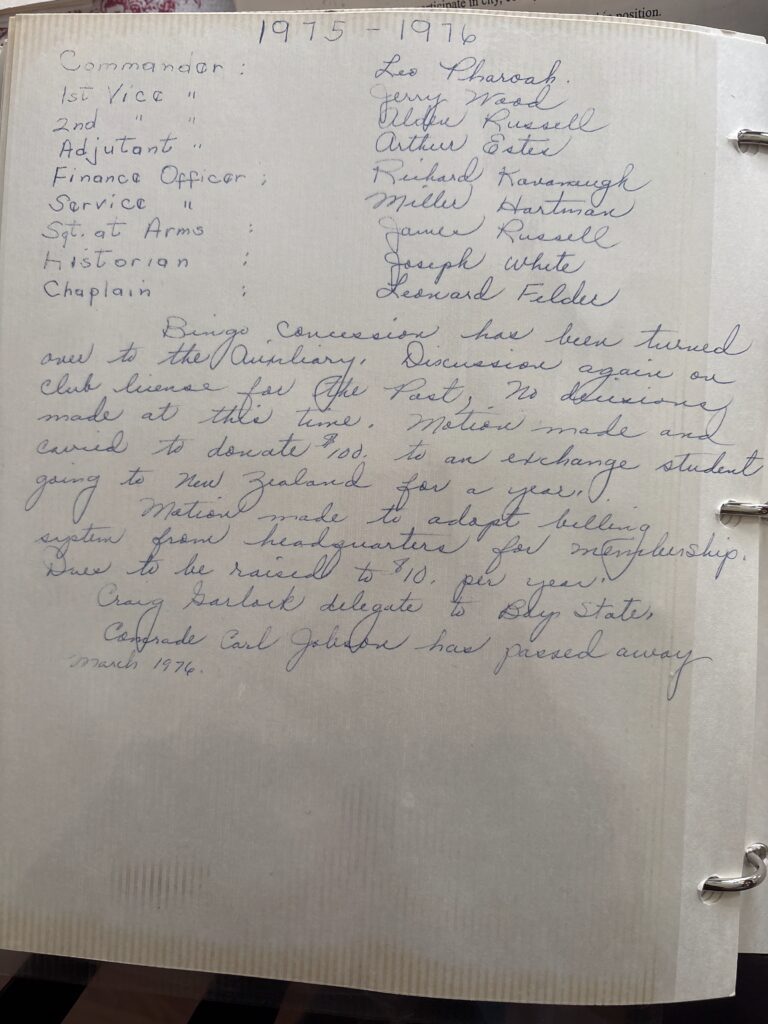 position.
1975 - 1976
Commander : Leo Pharoah.
1st Vice " Jerry Wood
2nd " " Alden Russell
Adjutant " Arthur Estes
Finance Officer ; Richard Kavanaugh
Service " Miller Hartman
Sgt. at Arms : James Russell
Historian : Joseph White
Chaplain ; Leonard Felder
Bingo Concession has been turned
over to the Auxiliary. Discussion again on
club license for the Post, No decisions
made at this time. Motion made and
carried to donate $100. to an exchange student
going to New Zealand for a year.
Motion made to adopt billing
system from headquarters for membership.
Dues to be raised to $10. per year.
Craig Garlock delegate to Boys State.
Comrade Carl Jobson has passed away
March 1976.